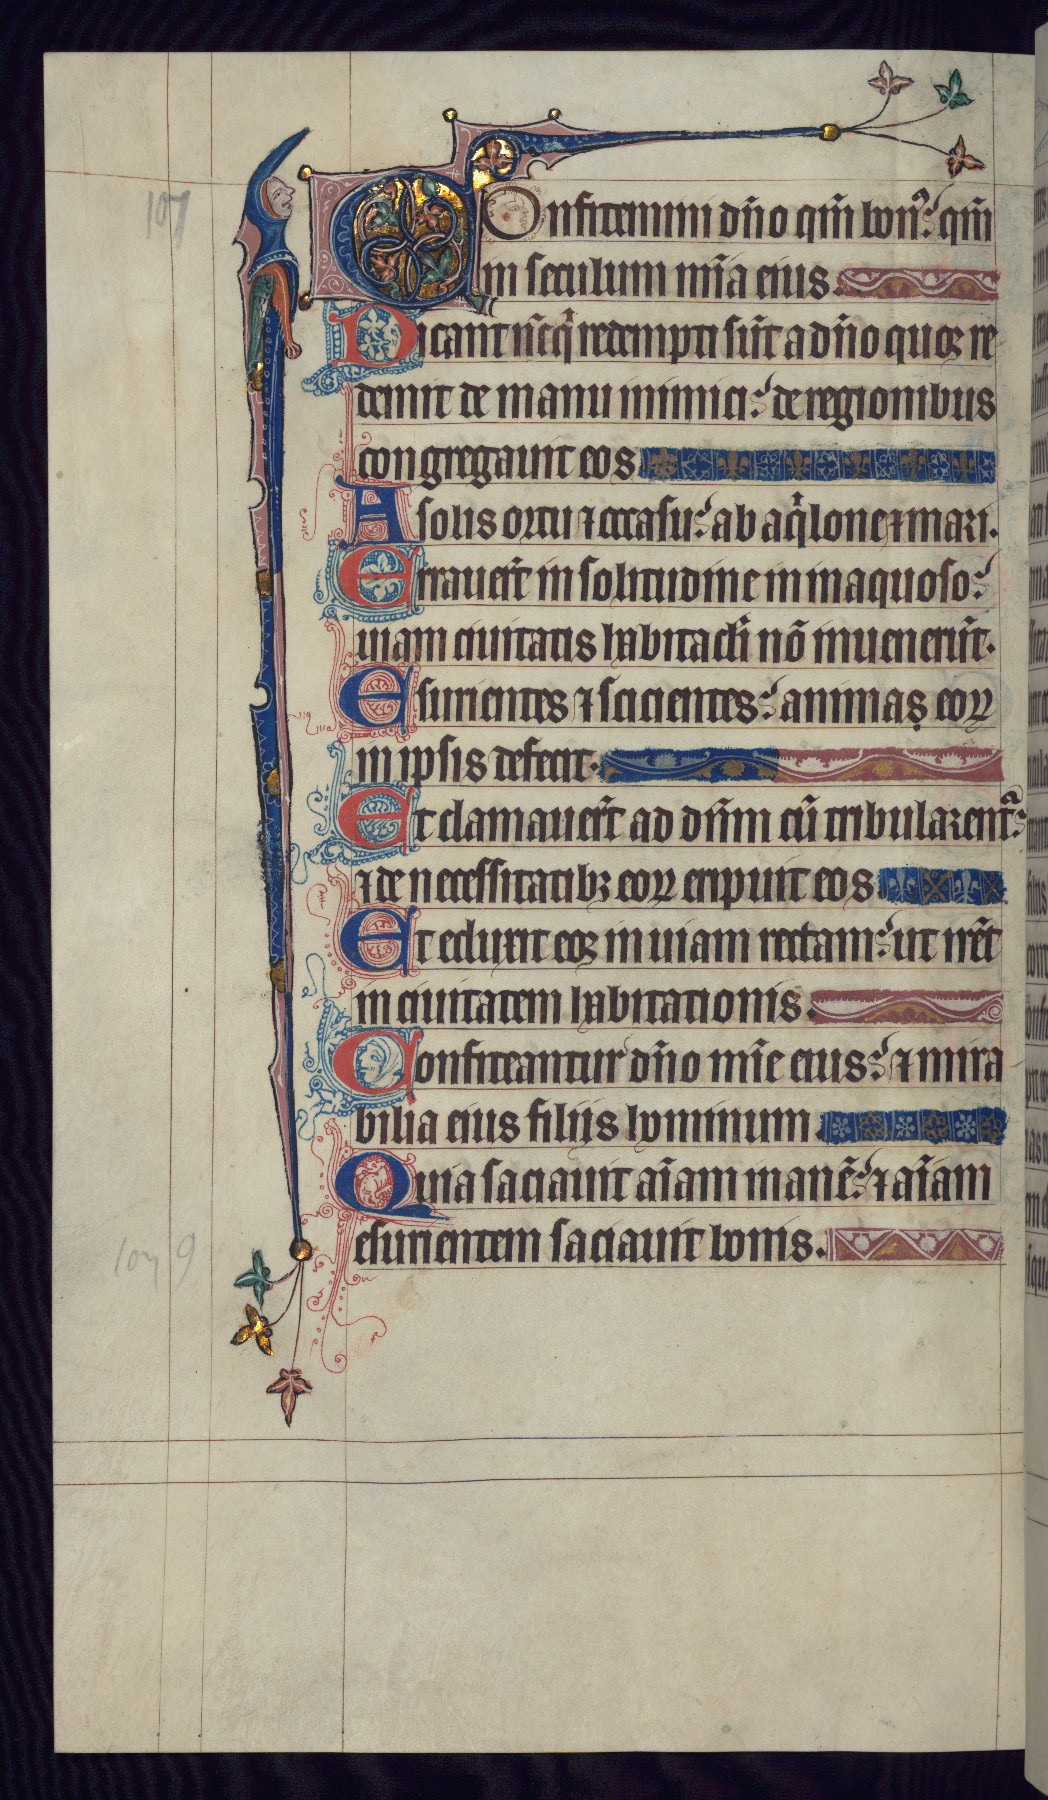 107
Confitemini dño qm̃ bonꝰ: qm̃
in seculum mĩa eius.
Dicant nc̃ qͥ redempti sũt a dño quos re
demit de manu inimici: de regionibus
congregauit eos
A solis ortu ⁊ occasu: ab aqͥlone ⁊ mari.
Errauer̃t in solitudine in inaquoso:
uiam ciuitatis habitacl̃i nõ inuenerũt.
Esurientes ⁊ scicientes: animaṣ eoꝝ
in ipsis defecit.
Et clamauer̃t ad dñm cũ tribularentᷣ:
⁊ de necessitatibꝫ eoꝝ eripuit eos
Et eduxit eos in uiam rectam: ut irẽt
in ciuitatem habitationis.
Confiteantur dño mĩe eius: ⁊ mira
bilia eius filijs hominum.
Quia saciauit aĩam inanẽ: ⁊ aĩam
esurientem saciauit bonis.